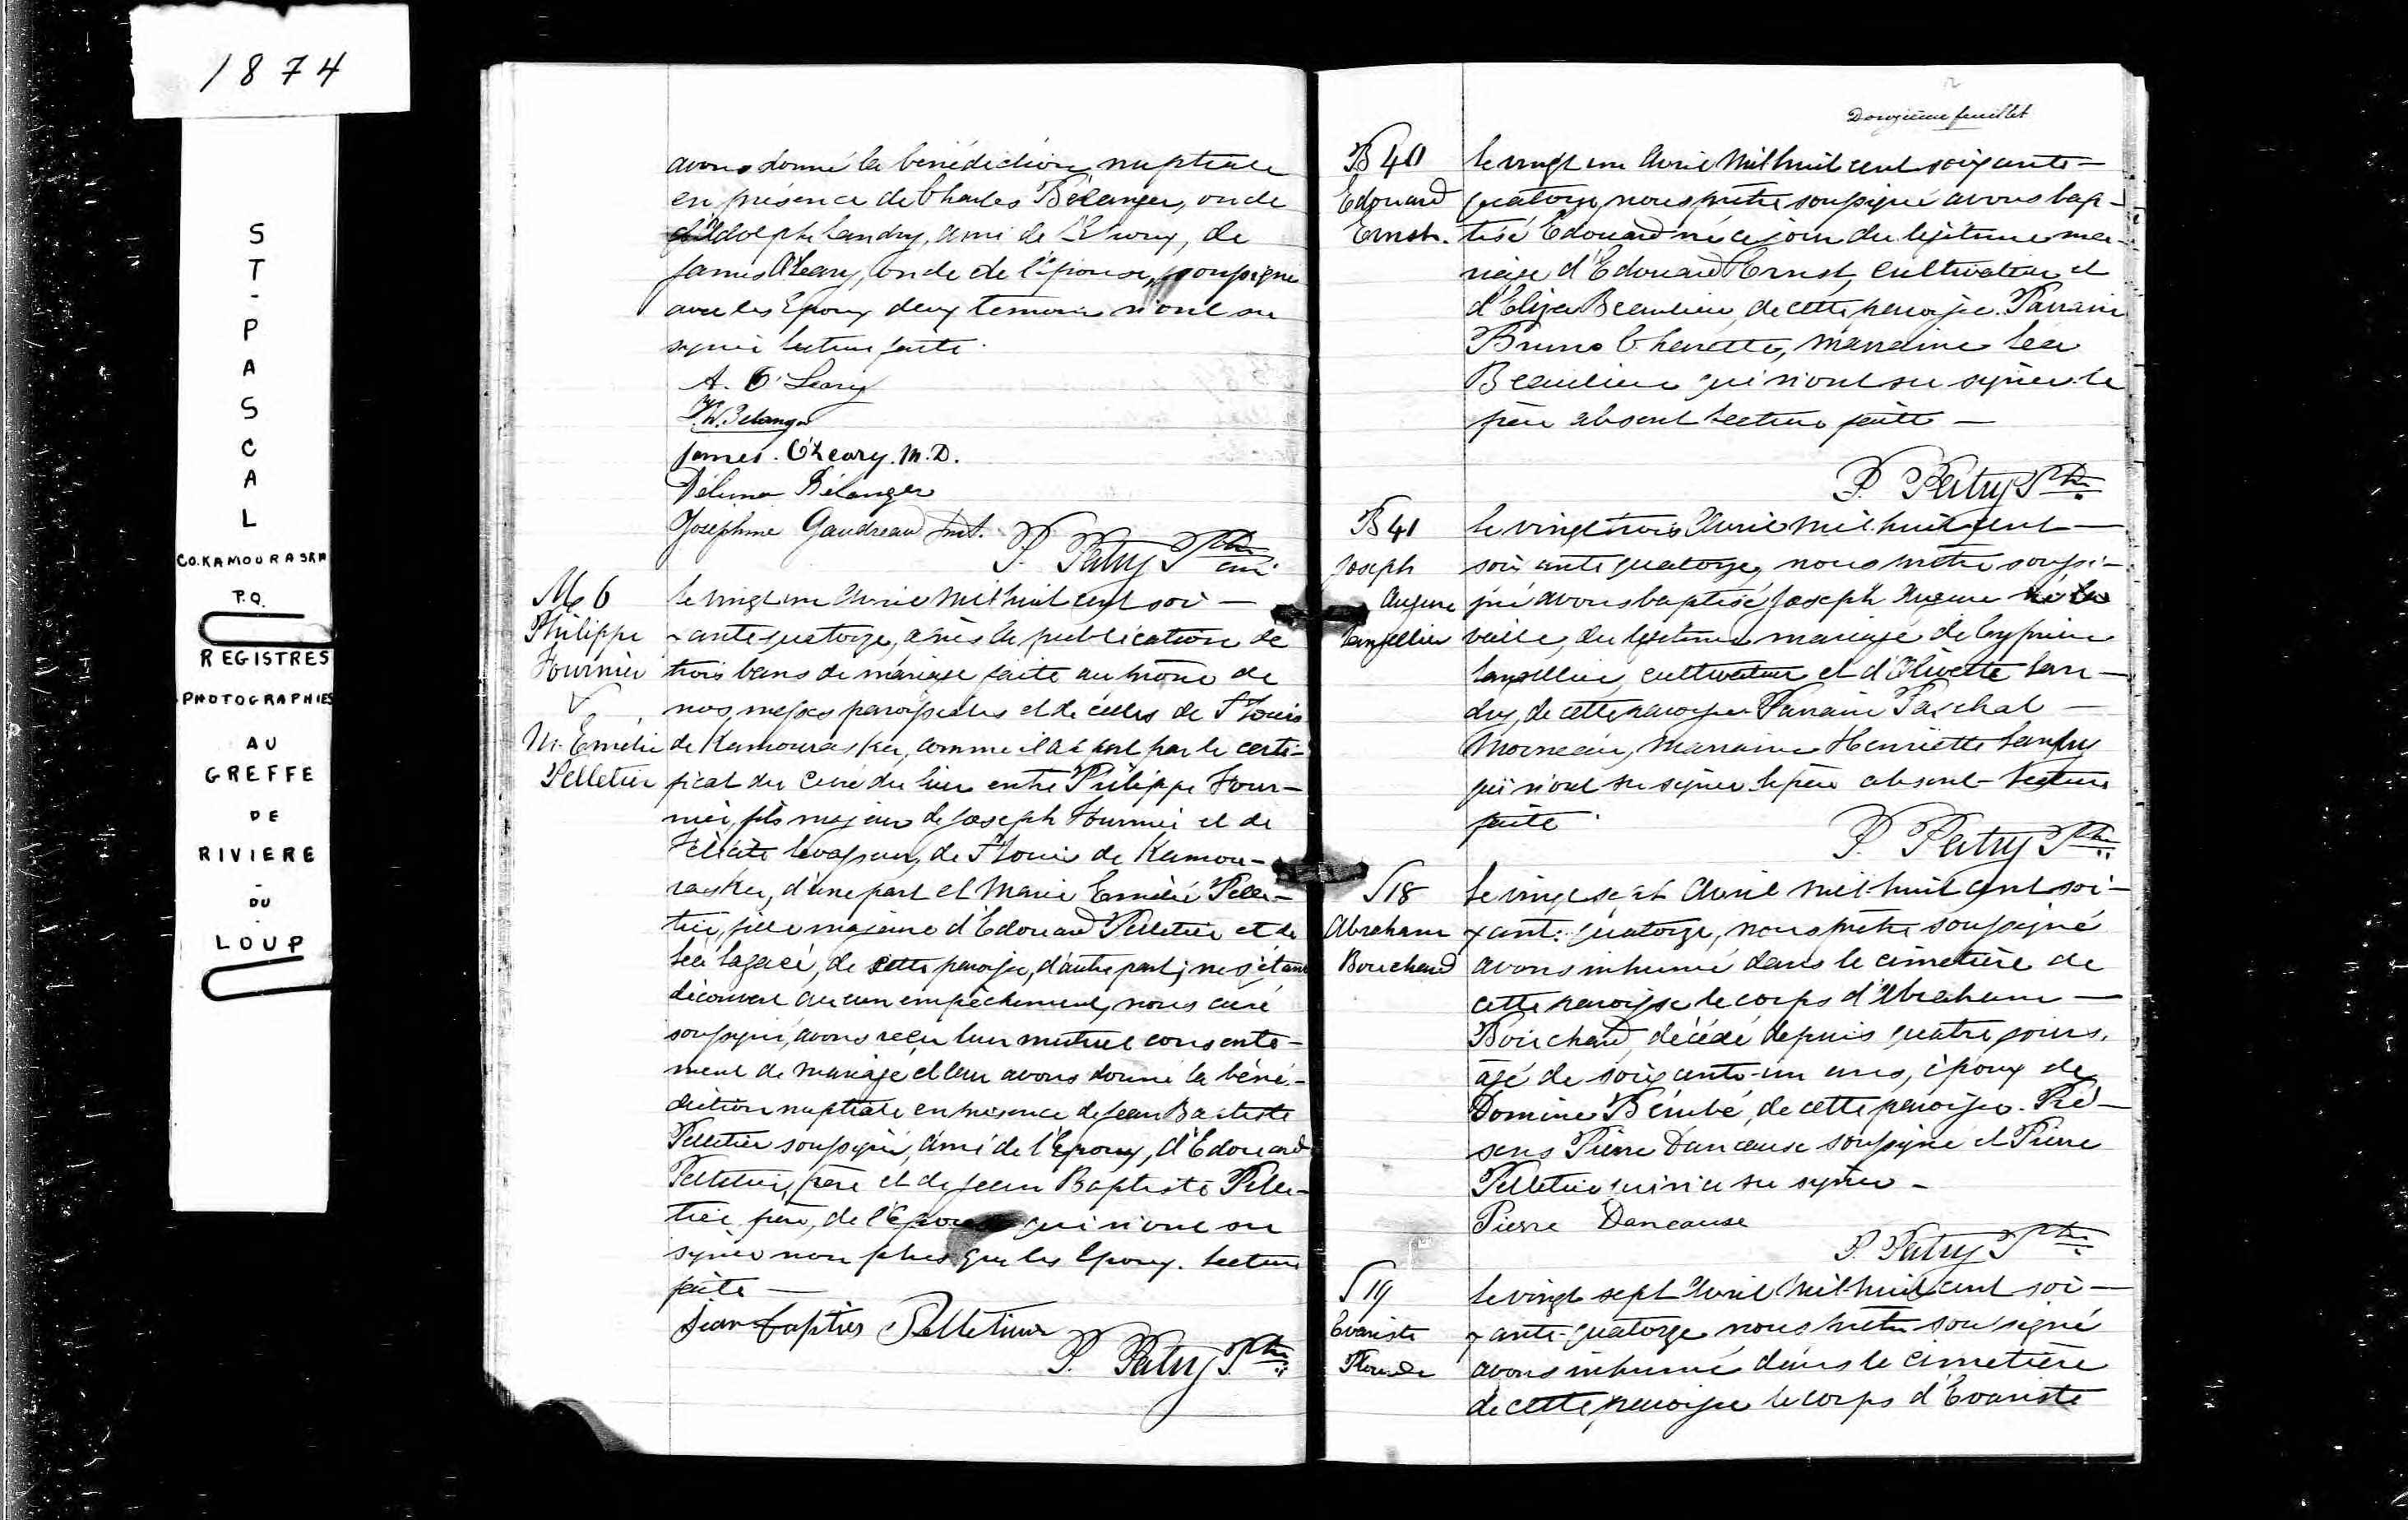 1874
ST-PASCAL
CO. KAMOURASKA
P.Q.
REGISTRES
PHOTOGRAPHIES
AU
GREFFE
DE
RIVIERE
-
DU
-
LOUP
avons donné la bénédiction nuptiale
en présence de Charles Bélanger, oncle
d'Adolphe Landry, ami de l'Epoux, de
James O'Leary, oncle de l'épouse, soussigné
avec les Epoux deux temoins n'ont su
signer lecture faite.
A. O'Leary
Belanger
James. O'Leary. M.D.
Délima Bélanger
Joséphine Gaudreau
P. Patry Ptre
curé
M 6
Philippe
Fournier
&
M. Emélie
Pelletier
Le vingt un Avril mil huit cent soi-
xante quatorze, après la publication de
trois bans de mariage faite au prône de
nos messes paroissiales et de celles de St Louis
de Kamouraska, comme il appert par le certi-
ficat du Curé du lieu entre Philippe Four-
nier, fils majeur de Joseph Fournier et de
Félicité Levasseur, de St Louis de Kamou-
raska, d'une part et Marie Emélie Pelle-
tier, fille majeure d'Edouard Pelletier et de
Léa Lagacé, de cette paroisse, d'autre part; ne s'étant
découvert aucun empêchement, nous curé
soussigné, avons reçu leur mutuel consente-
ment de mariage et leur avons donné la béné-
diction nuptiale en présence de Jean Baptiste
Pelletier soussigné, ami de l'Epoux, d'Edouard
Pelletier, père et de Jean Baptiste Pelle-
tier, frère, de l'Epouse qui n'ont su
signer non plus que les Epoux. Lecture
faite —
Jean bapties Pelletier
P. Patry Ptre
Douzième feuillet
B 40
Edouard
Ernst.
Le vingt un Avril Mil huit cent soixante-
quatorze, nous prêtre soussigné avons bap-
tisé Edouard né ce jour du légitime ma-
riage d'Edouard Ernst, cultivateur et
d'Eliza Beaulieu, de cette paroisse. Parrain
Bruno Charette, marraine Léa
Beaulieu qui n'ont su signer le
père absent Lecture faite —
P. Patry Ptre
B 41
Joseph
Eugène
Langellier
Le vingt trois Avril mil huit cent —
soixante quatorze, nous prêtre soussi-
gné avons baptisé Joseph Eugène né la
veille, du légitime mariage de Cyprien
Langellier, cultivateur et d'Olivette Lan-
dry, de cette paroisse Parrain Paschal —
Morneau, Marraine Henriette Landry
qui n'ont su signer le père absent- Lecture
faite.
P. Patry Ptre
S 18
Abraham
Bouchard
Le vingt sept Avril mil-huit cent soi-
xante quatorze, nous prêtre soussigné
avons inhumé dans le cimetière de
cette paroisse le corps d'Abraham —
Bouchard, décédé depuis quatre jours,
âgé de soixante-un ans, époux de
Domine Bérubé, de cette paroisse. Pré-
sens Pierre Dancause soussigné et Pierre
Pelletier qui n'a su signer —
Pierre Dancause
P. Patry Ptre
S 19
Evariste
Le vingt sept Avril Mil-huit cent soi-
xante-quatorze nous prêtre soussigné
avons inhumé dans le cimetière
de cette paroisse le corps d'Evariste